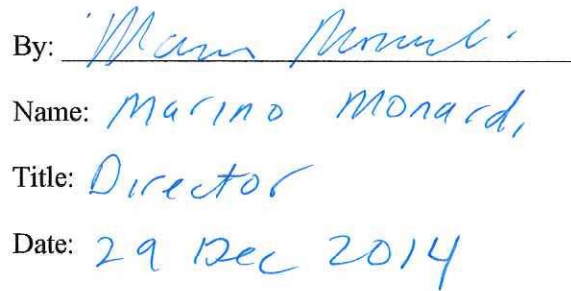 By:
Name: Marino Monardi
Title: Director
Date: 29 Dec 2014